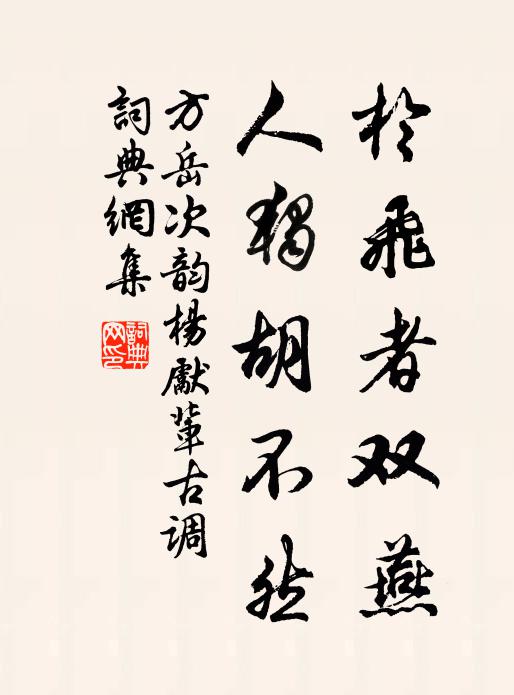 於飛者双燕
人独胡不然
方岳次韵楊獻軰古调
詞典網集
詞典网印